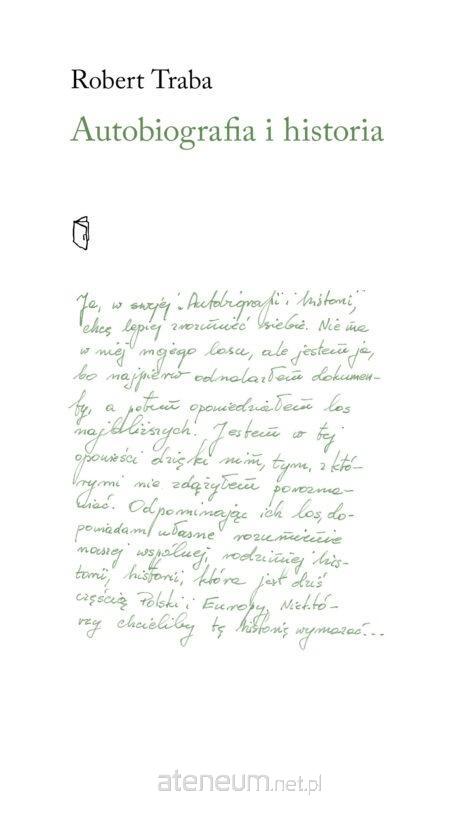 Robert Traba
Autobiografia i historia
Ja, w swojej "Autobiografii i historii",
chcę lepiej zrozumieć siebie. Nie ma
w niej mojego losu, ale jestem ja,
bo najpierw odnalazłem dokumen-
ty, a potem opowiedziałem los
najbliższych. Jestem w tej
opowieści dzięki nim, tym, z któ-
rymi nie zdążyłem porozma-
wiać. Odpominając ich los, do-
powiadam własne rozumienie
naszej wspólnej, rodzinnej his-
torii, historii, która jest dziś
częścią Polski i Europy. Niektó-
rzy chcieliby tę historię wymazać...
ateneum.net.pl